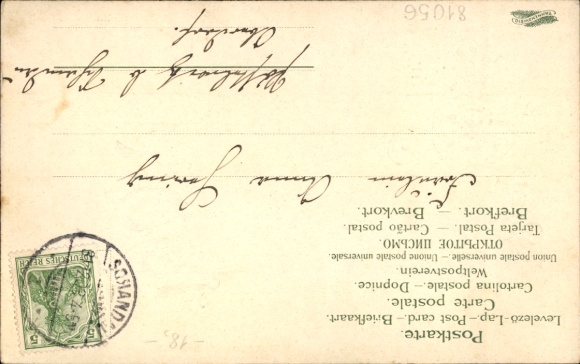 Postkarte.
Levelező-Lap. – Post card – Briefkaart.
Carte postale.
Cartolina postale. – Dopnice.
Weltpostverein.
Union postale universelle. – Unione postale universale.
ОТКРЫТОЕ ПИСЬМО.
Tarjeta Postal. – Cartão postal.
Brefkort. – Brevkort.
Fräulein Anna
b. Schandau
81056
-18,-
SCHANDAU
DEUTSCHES REICH
5
5